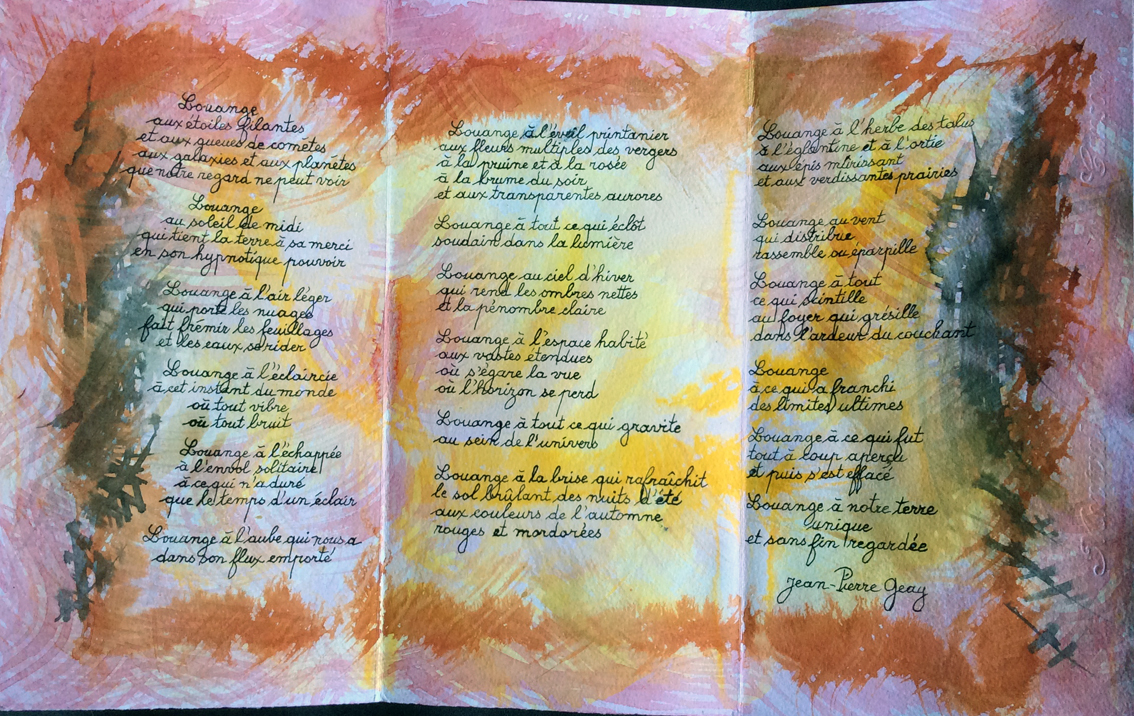 Louange
aux étoiles filantes
et aux queues de comètes
aux galaxies et aux planètes
que notre regard ne peut voir
Louange
au soleil de midi
qui tient la terre à sa merci
en son hypnotique pouvoir
Louange à l'air léger
qui porte les nuages
fait frémir les feuillages
et les eaux se rider
Louange à l'éclaircie
à cet instant du monde
où tout vibre
où tout bruit
Louange à l'échappée
à l'envol solitaire
à ce qui n'a duré
que le temps d'un éclair
Louange à l'aube qui nous a
dans son flux emporté
Louange à l'éveil printanier
aux fleurs multiples des vergers
à la pruine et à la rosée
à la brume du soir
et aux transparentes aurores
Louange à tout ce qui éclôt
soudain dans la lumière
Louange au ciel d'hiver
qui rend les ombres nettes
et la pénombre claire
Louange à l'espace habité
aux vastes étendues
où s'égare la vue
où l'horizon se perd
Louange à tout ce qui gravite
au sein de l'univers
Louange à la brise qui rafraîchit
le sol brûlant des nuits d'été
aux couleurs de l'automne
rouges et mordorées
Louange à l'herbe des talus
à l'églantine et à l'ortie
aux épis mûrissant
et aux verdissantes prairies
Louange au vent
qui distribue
rassemble ou éparpille
Louange à tout
ce qui scintille
au foyer qui grésille
dans l'ardeur du couchant
Louange
à ce qui a franchi
des limites ultimes
Louange à ce qui fut
tout à coup aperçu
et puis s'est effacé
Louange à notre terre
unique
et sans fin regardée
Jean-Pierre Geay